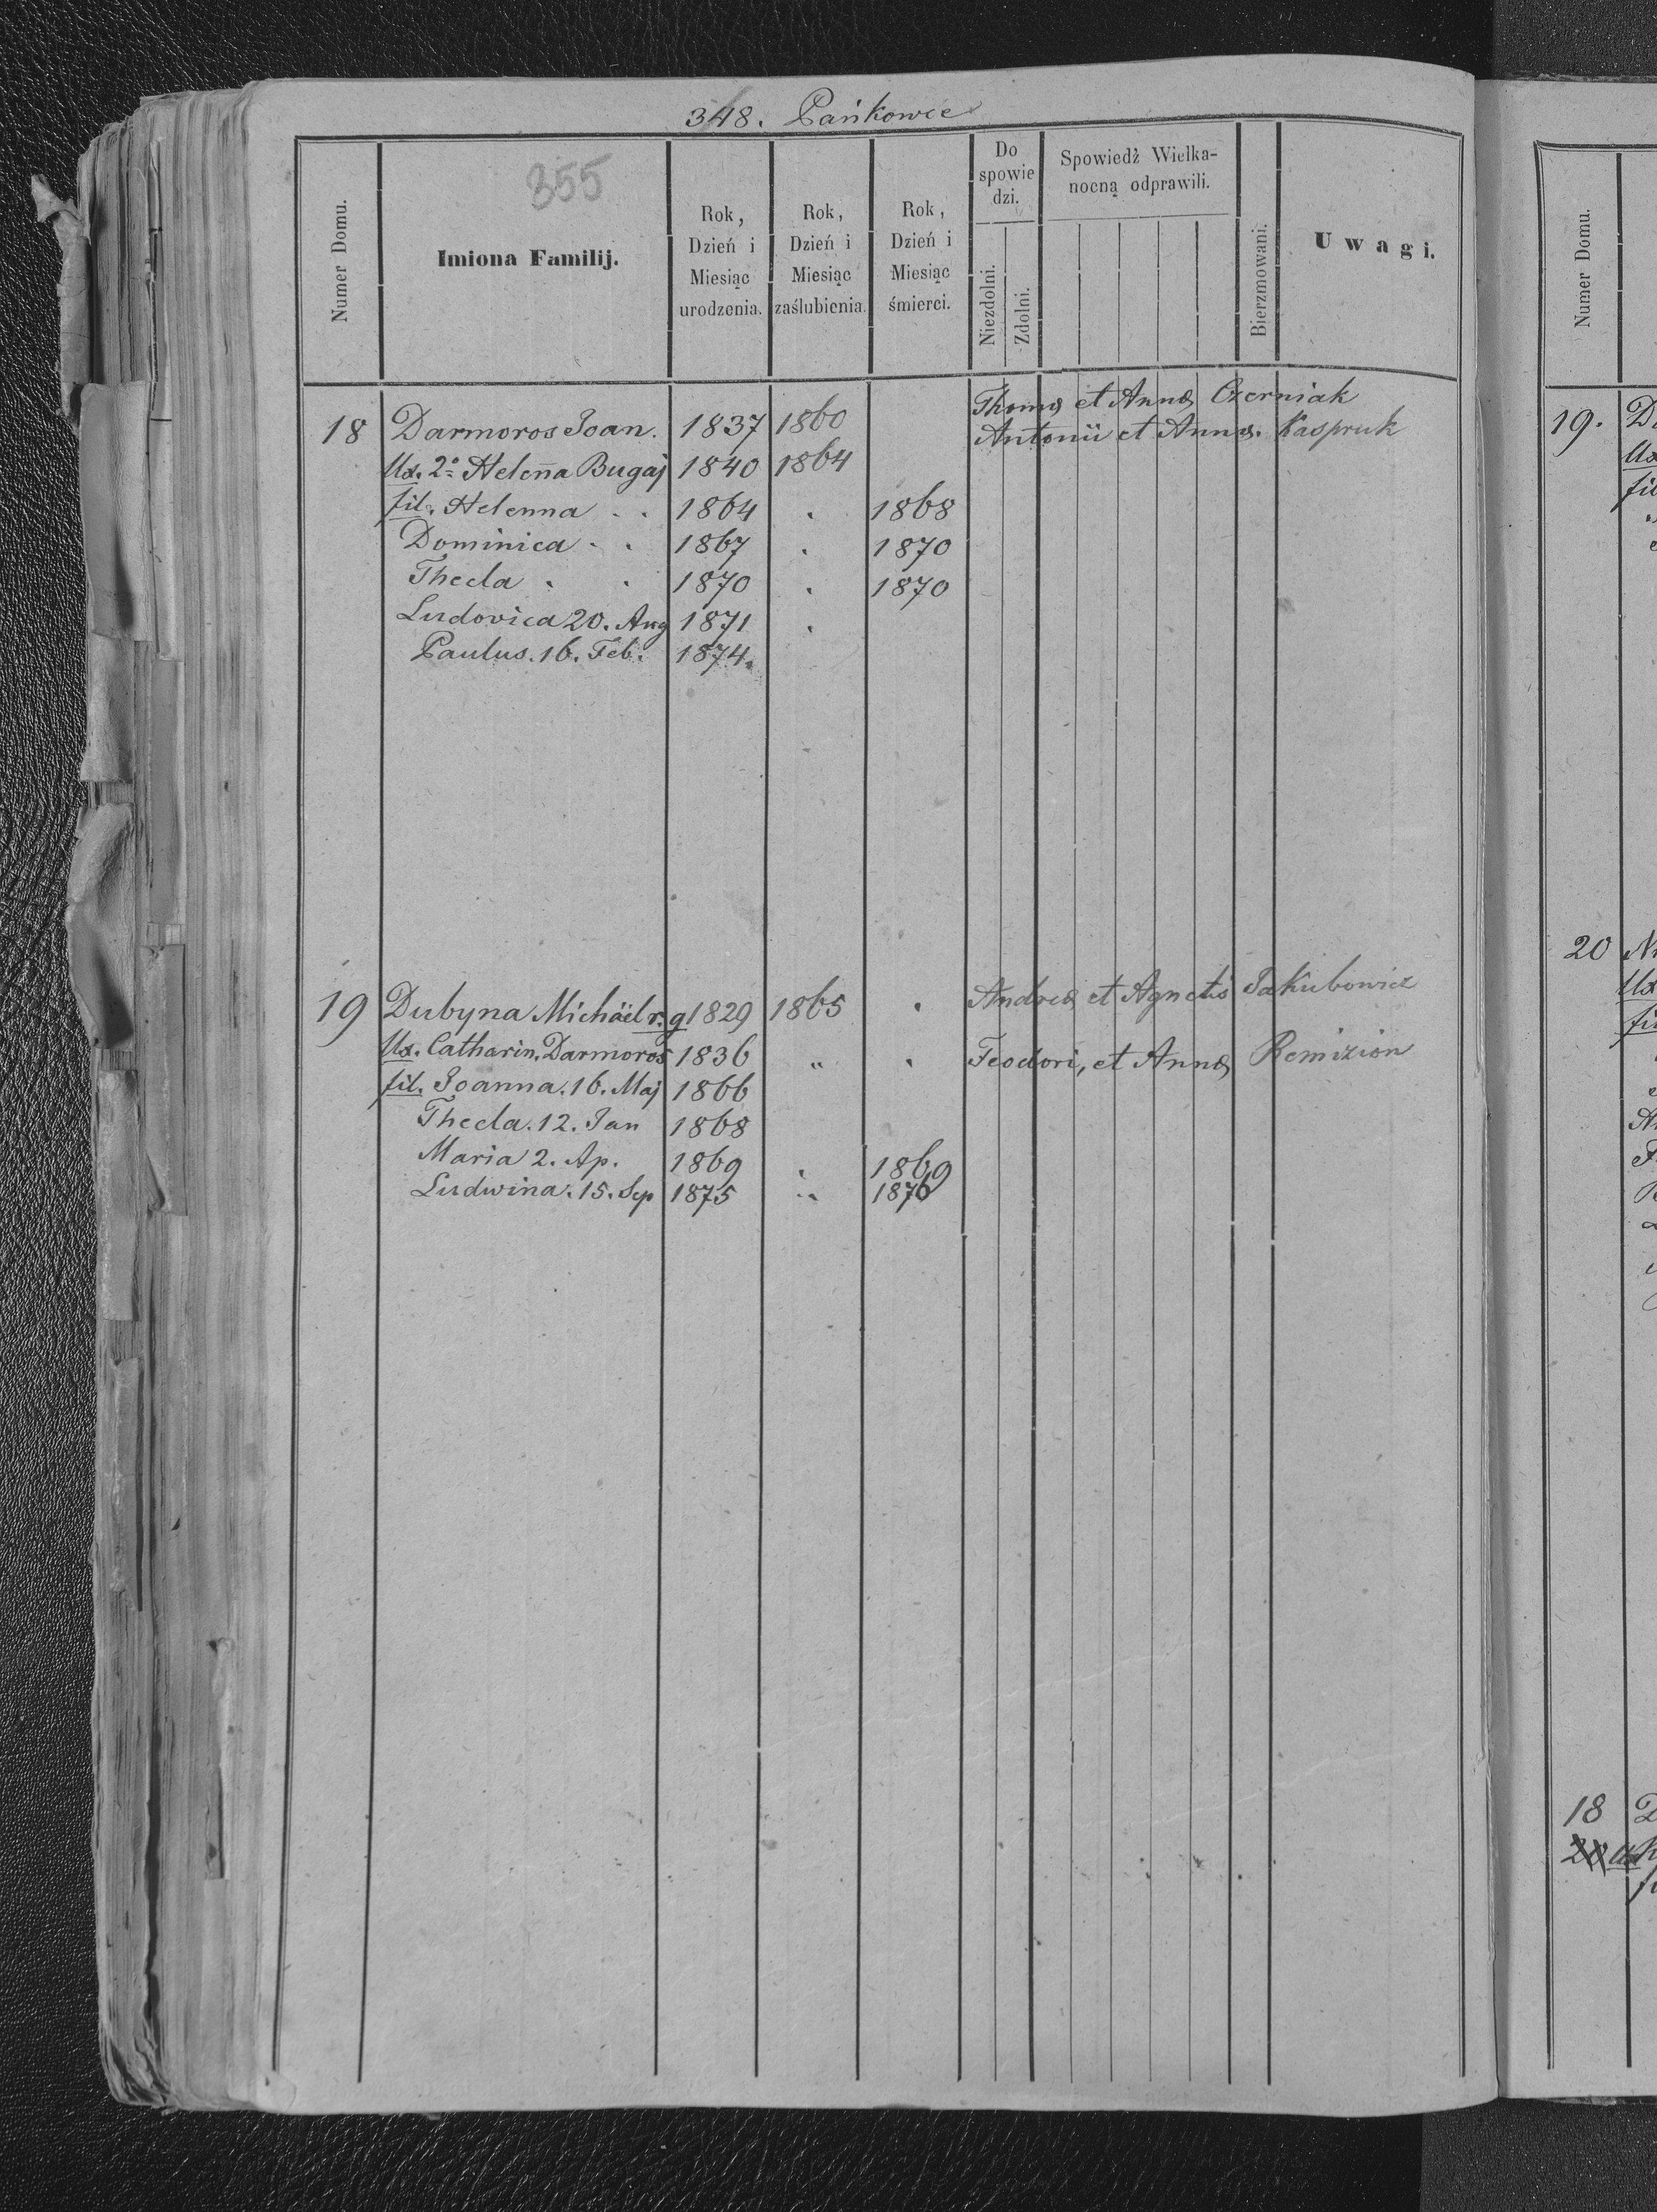 348. Pańkowce
355
Numer Domu.
Imiona Familij.
Rok, Dzień i Miesiąc urodzenia.
Rok, Dzień i Miesiąc zaślubienia.
Rok, Dzień i Miesiąc śmierci.
Do spowiedzi.
Niezdolni.
Zdolni.
Spowiedź Wielkanocną odprawili.
Bierzmowani.
Uwagi.
18 Darmoros Joan. 1837 1860 Thomæ et Annæ Czerniak
Ux. 2º Helenna Bugaj 1840 1864 Antonii et Annæ. Kaspruk
fil. Helenna . . 1864 . 1868
Dominica . . 1867 . 1870
Thecla . . 1870 . 1870
Ludovica 20. Aug 1871 .
Paulus. 16. Feb. 1874.
19 Dubyna Michäel r. g 1829 1865 . Andreæ et Agnetis Jakubowicz
Ux. Catharin. Darmoros 1836 " . Teodori, et Annæ Remizion
fil. Joanna. 16. Maj 1866
Thecla. 12. Jan 1868
Maria 2. Ap. 1869 . 1869
Ludwina. 15. Sep 1875 .. 1876
Numer Domu.
19.
Ux
fil
20
Ux
18
20